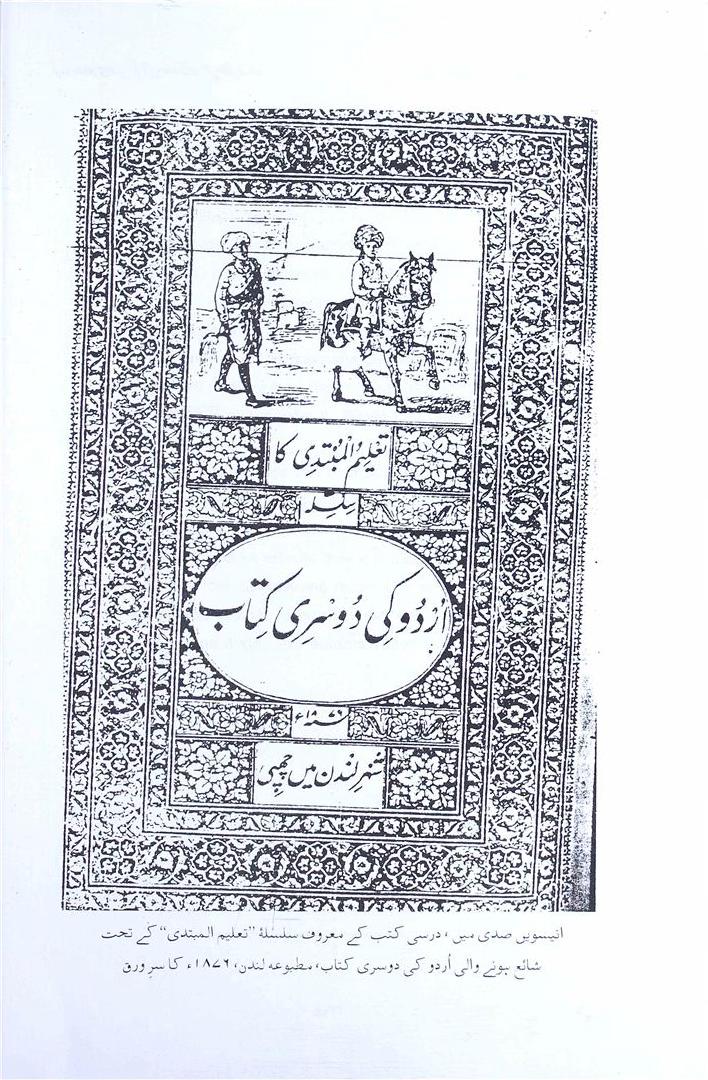 تعلیمُ المُبتَدِی کا
سِلسِلہ
اُردُو کی دُوسْرِی کِتاب
شہرِ لندن میں چھپی
انیسویں صدی میں، درسی کتب کے معروف سلسلۂ "تعلیم المبتدی" کے تحت
شائع ہونے والی اُردو کی دوسری کتاب، مطبوعہ لندن، ۱۸۷۶ء کا سرِ ورق